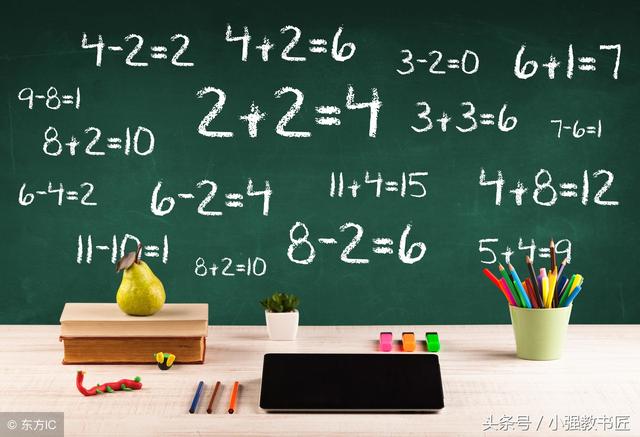 4-2=2
4+2=6
3-2=0
6+1=7
9-8=1
2+2=4
3+3=6
7-6=1
8+2=10
6-4=2
6-2=4
11+4=15
4+8=12
11-10=1
8+2=10
8-2=6
5+4=9
© 东方IC
头条号 / 小强教书匠